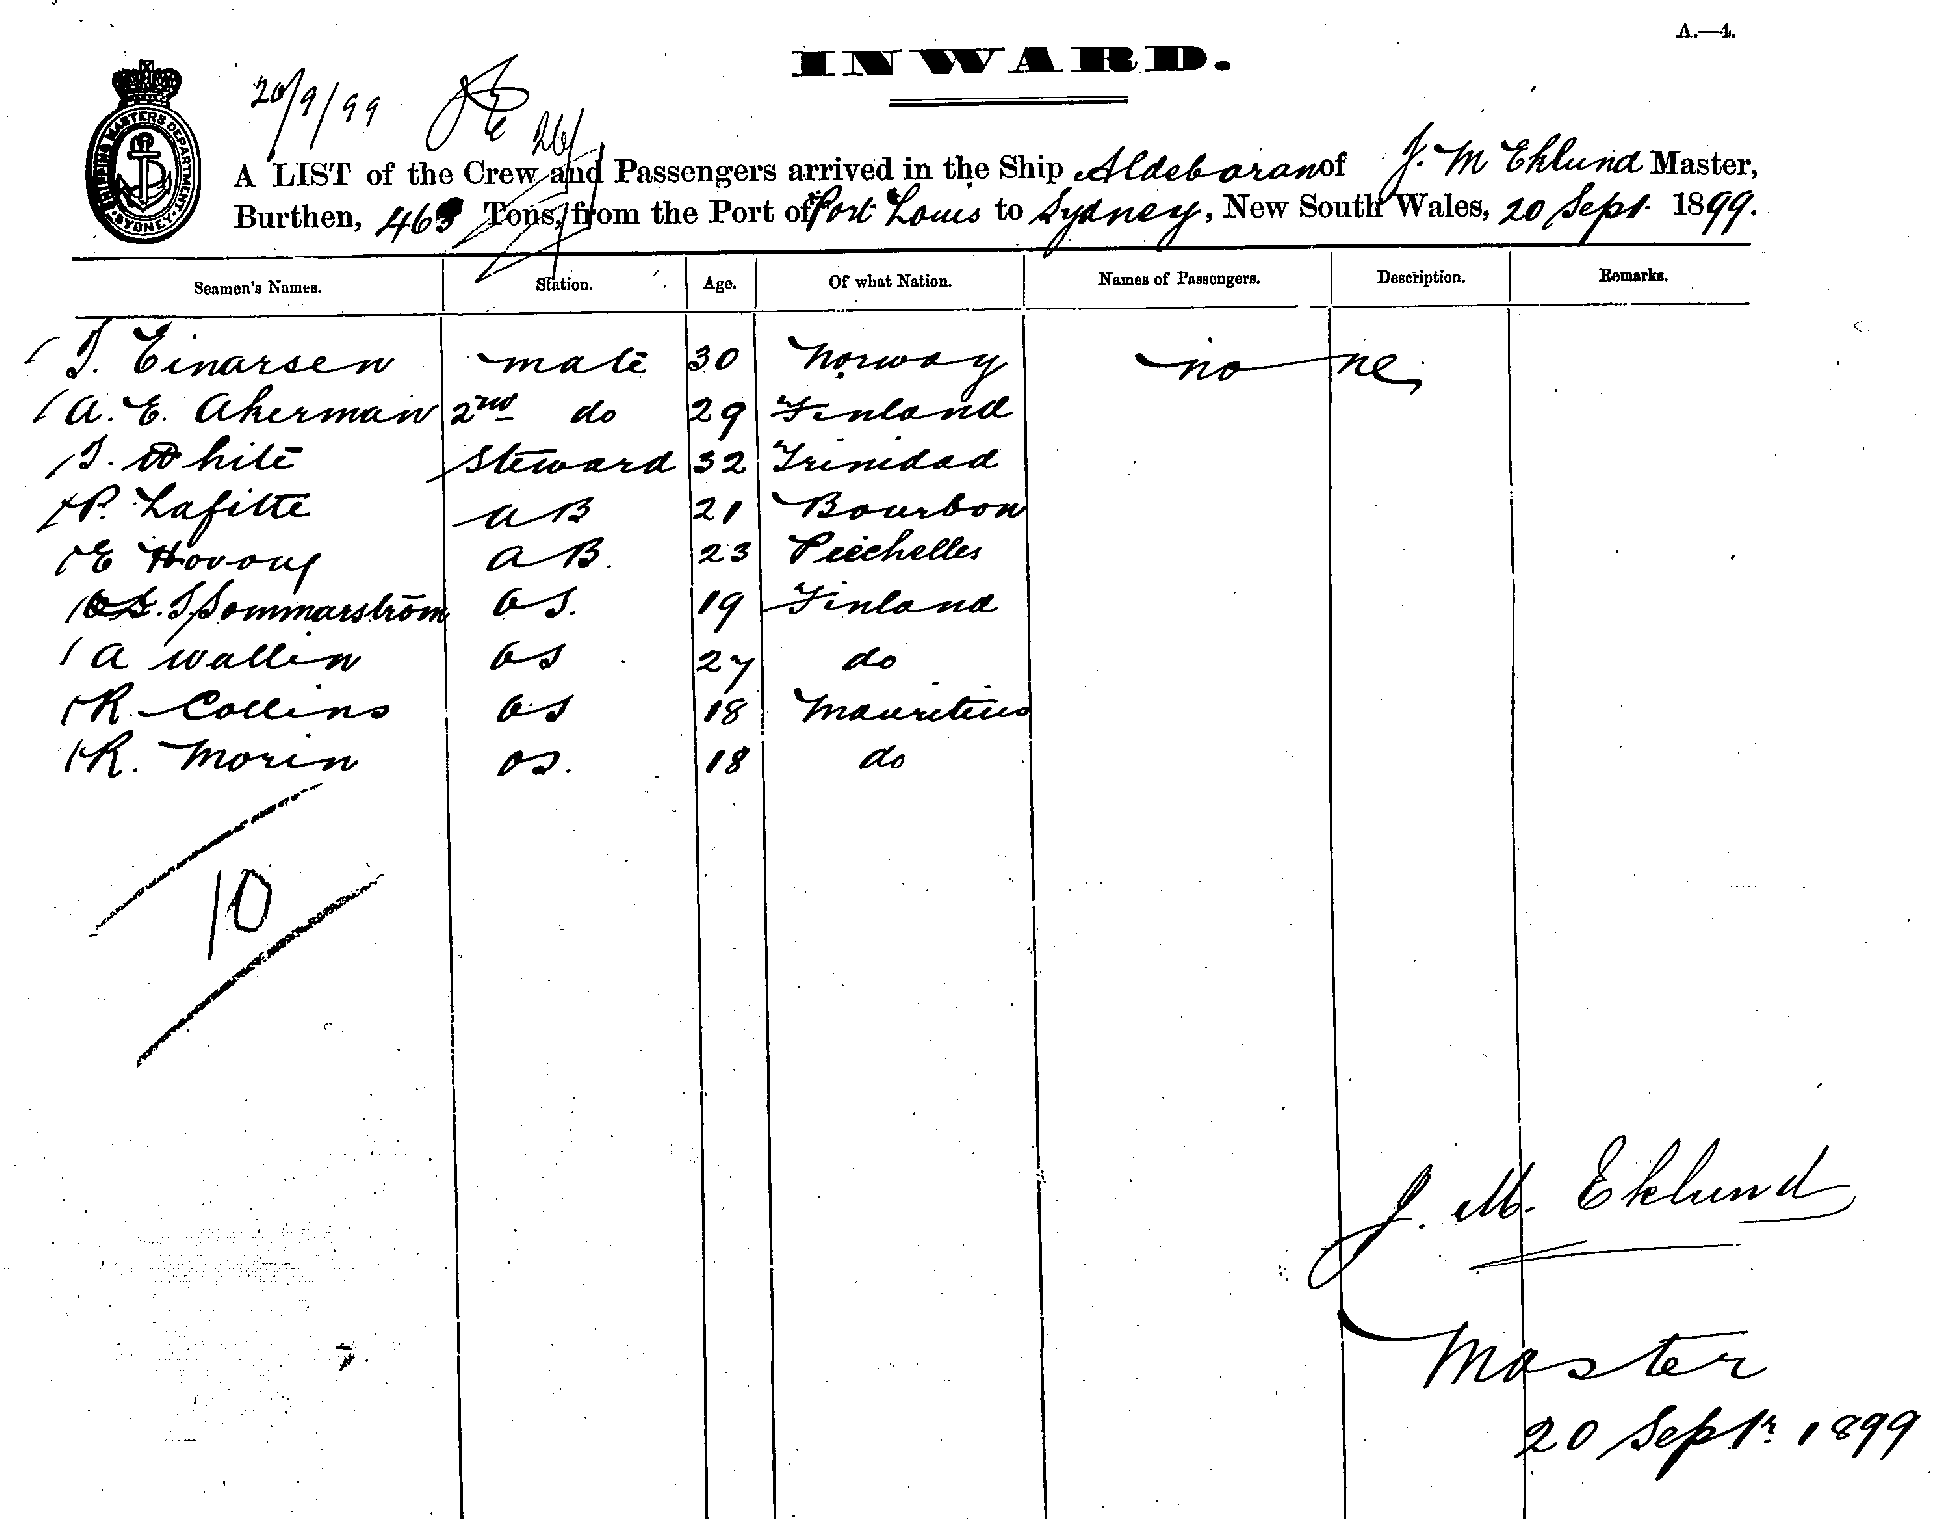 A.—4.
INWARD.
20/9/99
26/
SHIPPING MASTERS DEPARTMENT SYDNEY
A LIST of the Crew and Passengers arrived in the Ship Aldebaran of J. M Eklund Master,
Burthen, 463 Tons, from the Port of Port Louis to Sydney, New South Wales, 20 Sept. 1899.
Seamen's Names. Station. Age. Of what Nation. Names of Passengers. Description. Remarks.
J. Einarsen mate 30 Norway none
A. E. Akerman 2nd do 29 Finland
J. White Steward 32 Trinidad
P. Lafitte AB 21 Bourbon
E AB. 23
Sommarström OS. 19 Finland
A Wallin OS 27 do
R Collins OS 18 Mauritius
R. Morin OS. 18 do
10
J. M. Eklund
Master
20 Septr. 1899